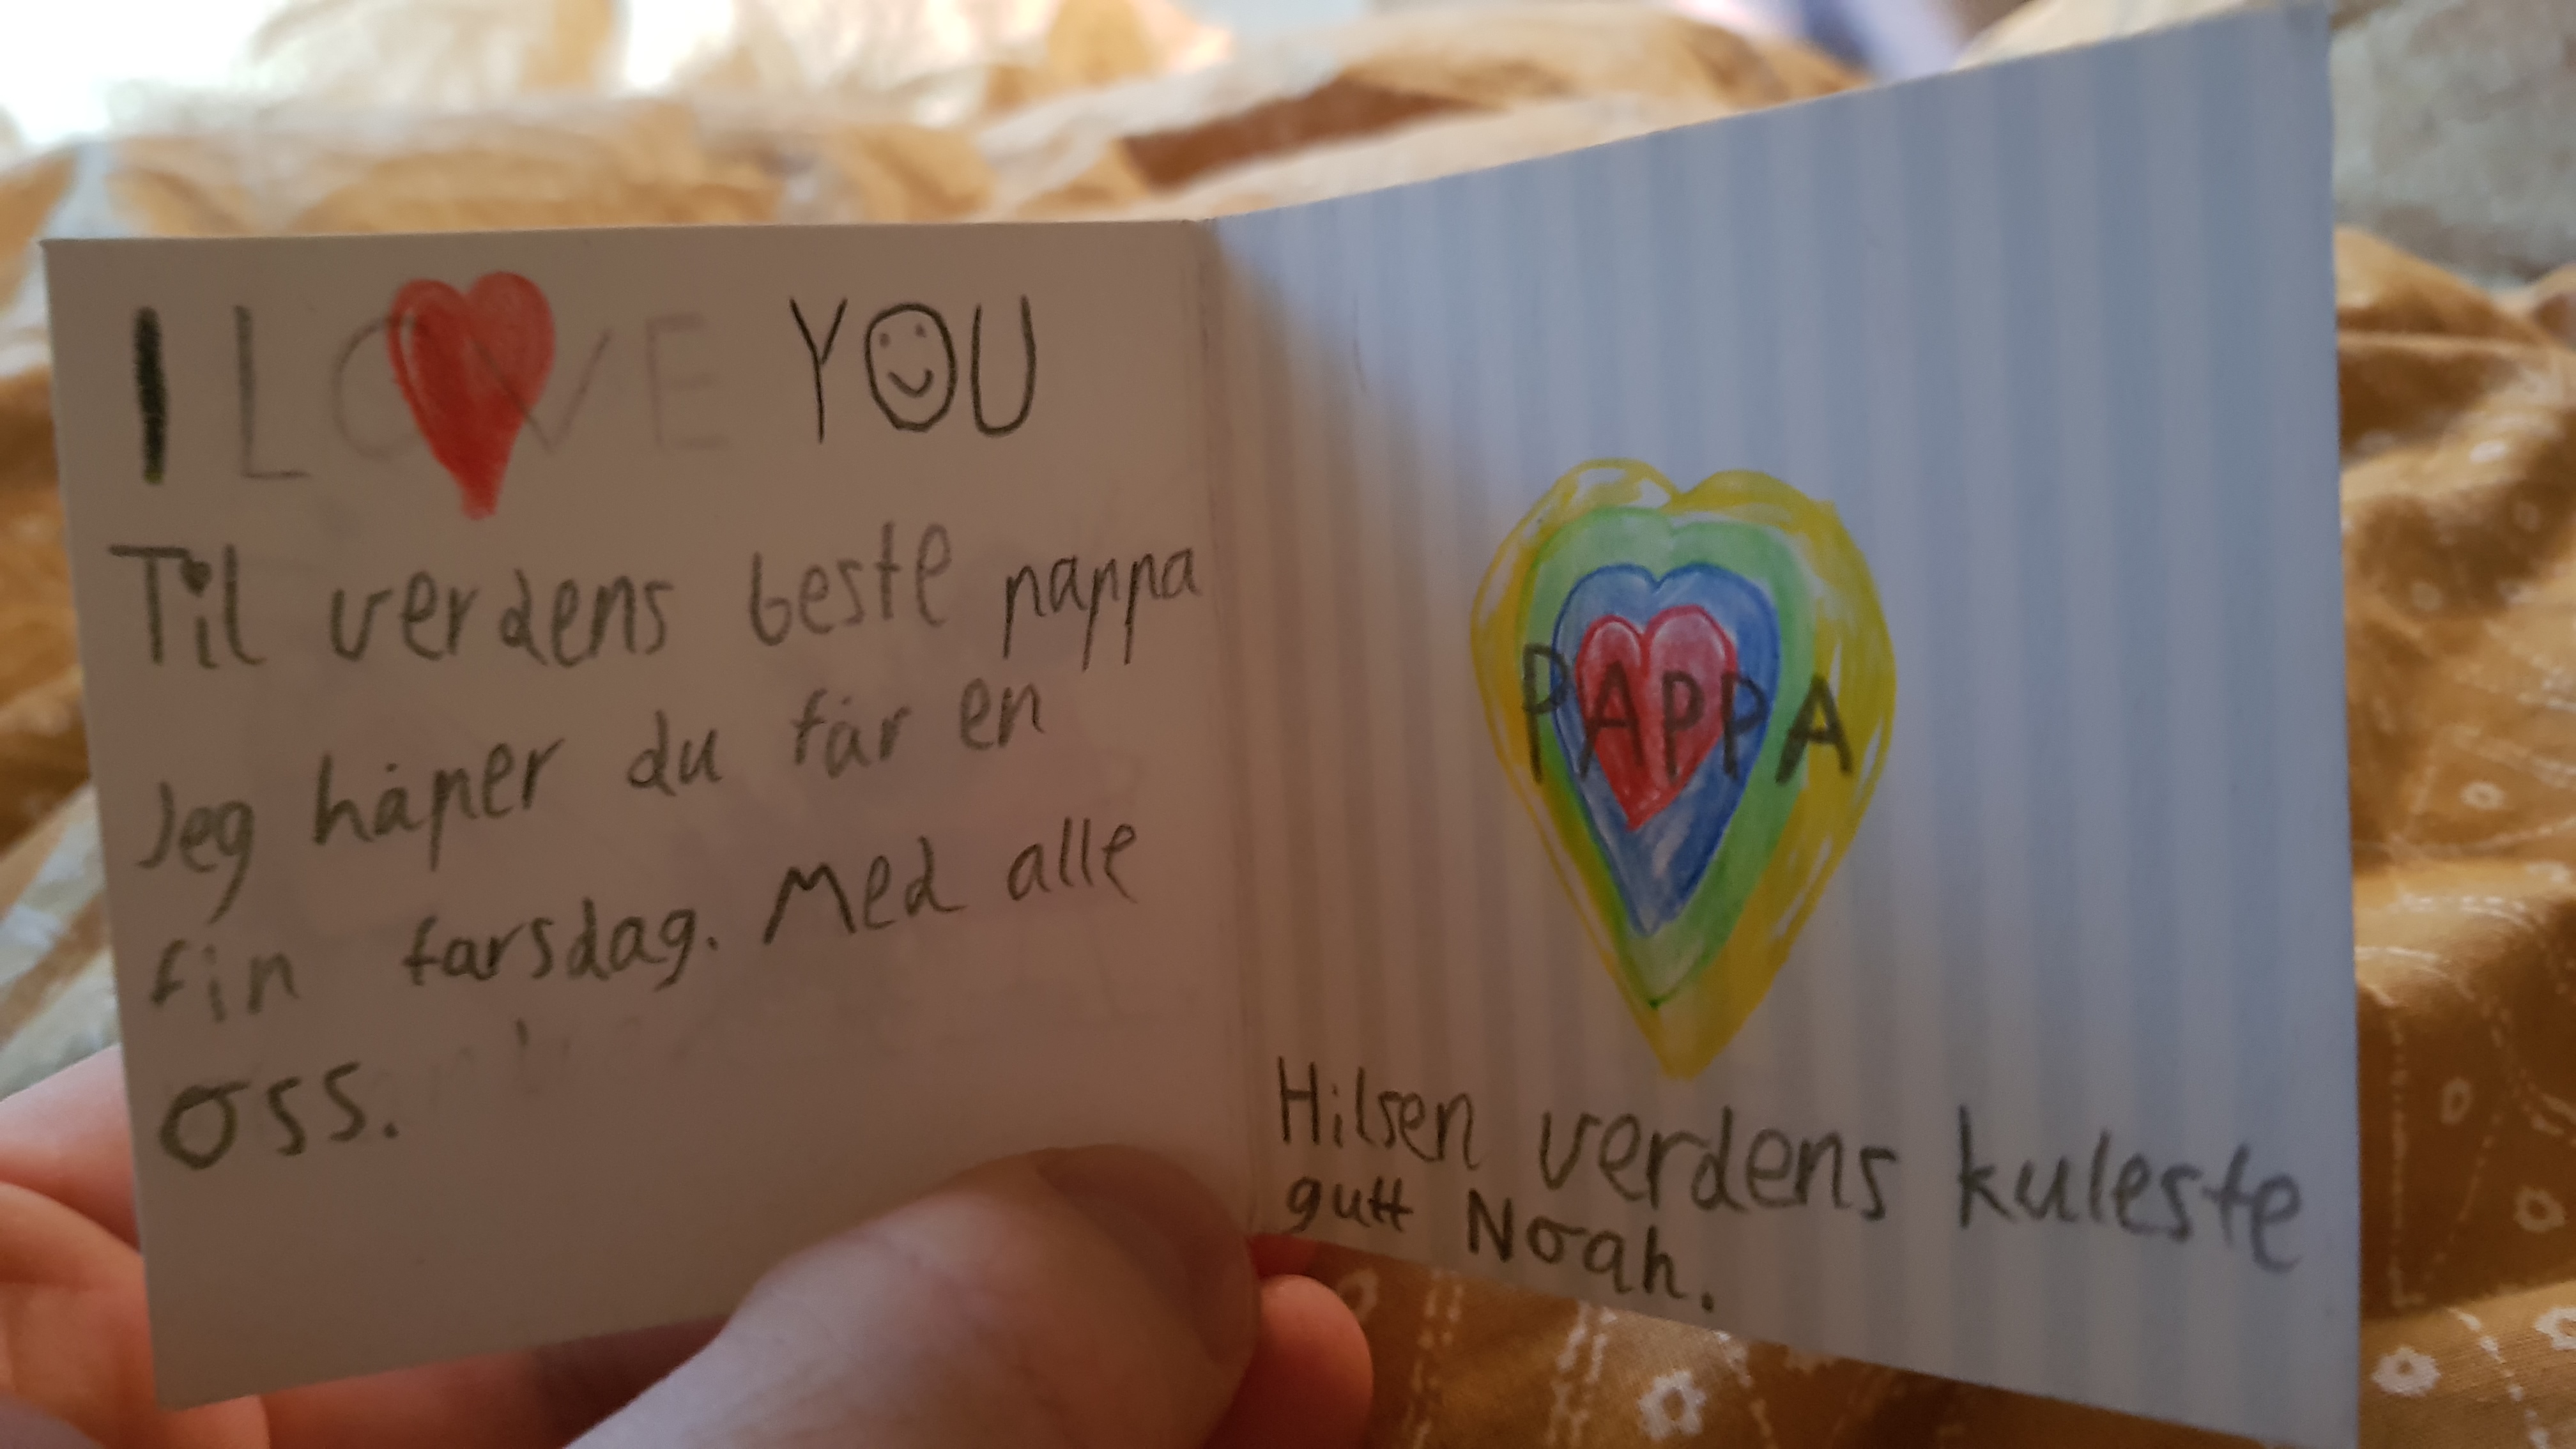 I LOVE YOU
Til verdens beste pappa
Jeg håper du får en
fin farsdag. Med alle
oss.
PAPPA
Hilsen verdens kuleste
gutt Noah.